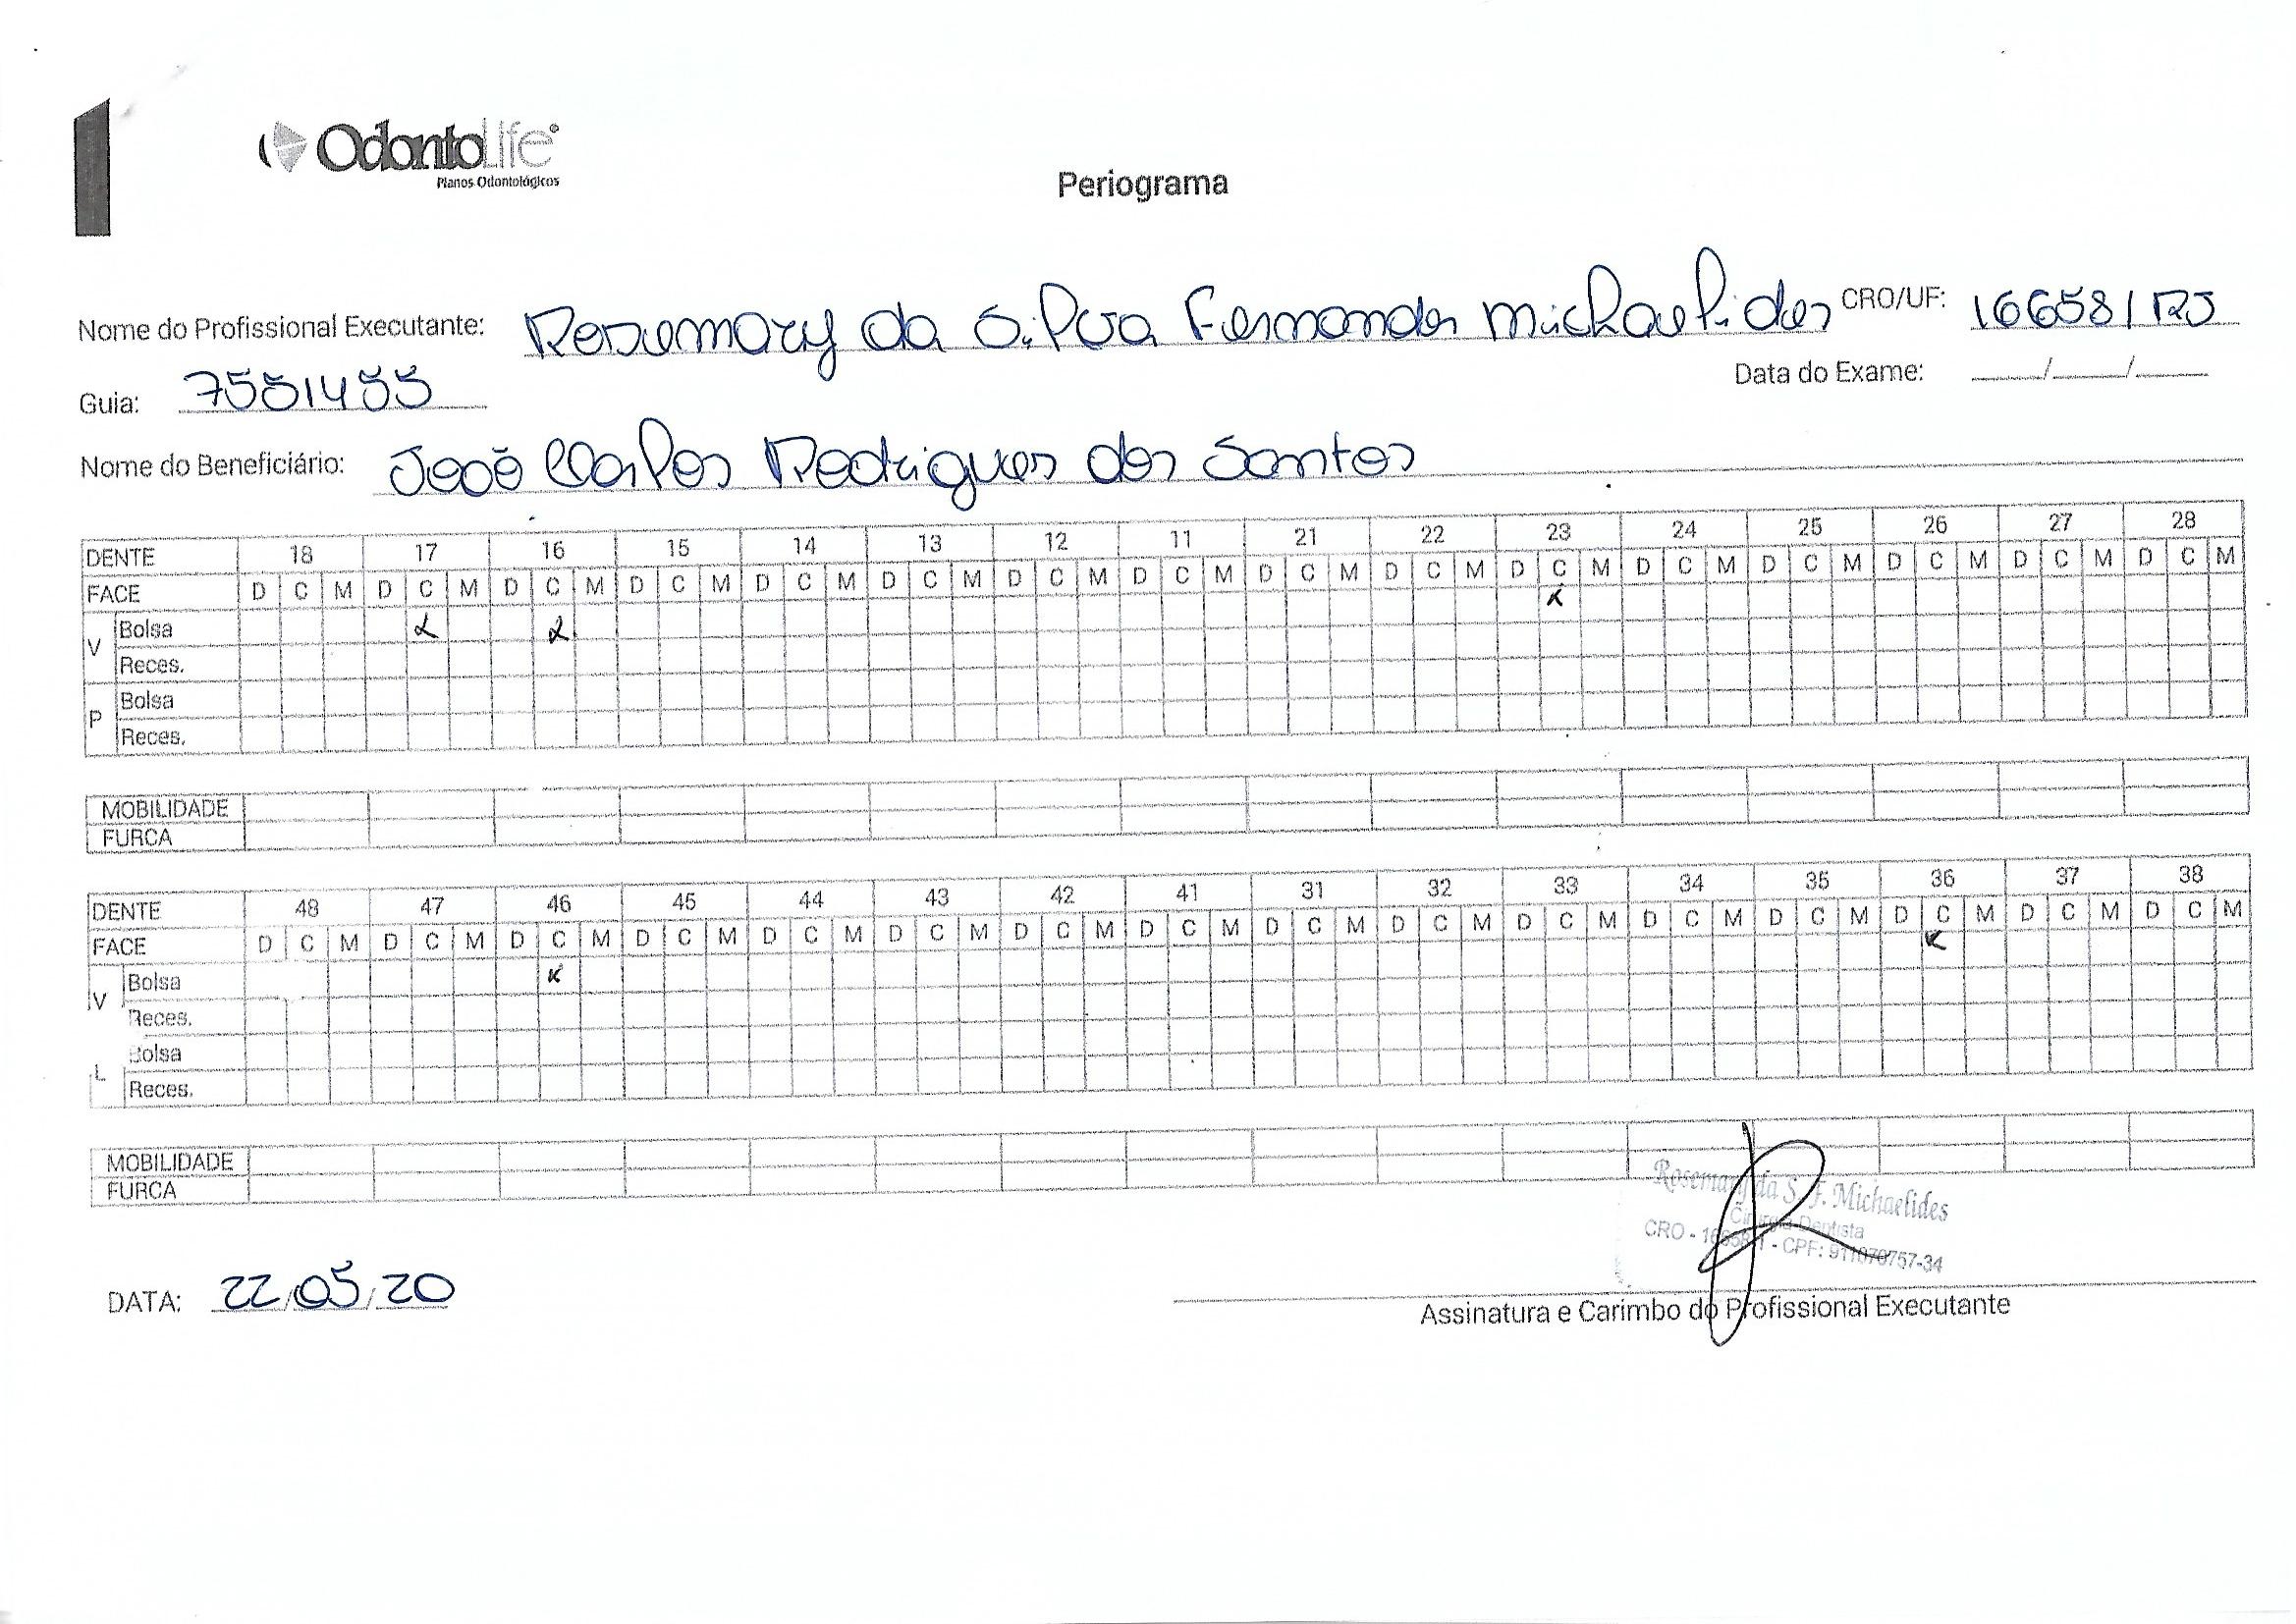 OdontoLife
Planos Odontológicos
Periograma
Nome do Profissional Executante: Rosemary da Silva Fernandes Michaelides CRO/UF: 16658/RJ
Guia: 7551455 Data do Exame: / /
Nome do Beneficiário: João Carlos Rodrigues dos Santos
DENTE 18 17 16 15 14 13 12 11 21 22 23 24 25 26 27 28
FACE D C M D C M D C M D C M D C M D C M D C M D C M D C M D C M D C M D C M D C M D C M D C M D C M
V Bolsa
Reces.
P Bolsa
Reces.
MOBILIDADE
FURCA
DENTE 48 47 46 45 44 43 42 41 31 32 33 34 35 36 37 38
FACE D C M D C M D C M D C M D C M D C M D C M D C M D C M D C M D C M D C M D C M D C M D C M D C M
V Bolsa
Reces.
L Bolsa
Reces.
MOBILIDADE
FURCA
Rosemary da S. F. Michaelides
Cirurgiã Dentista
CRO - - CPF: 911070757-34
DATA: 22/05/20
Assinatura e Carimbo do Profissional Executante